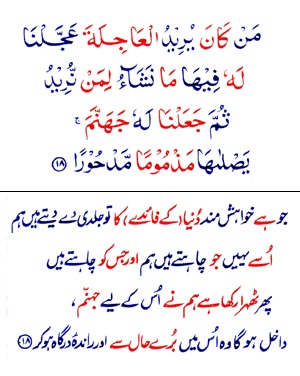 مَنْ كَانَ يُرِيْدُ الْعَاجِلَةَ عَجَّلْنَا
لَهٗ فِيْهَا مَا نَشَآءُ لِمَنْ نُّرِيْدُ
ثُمَّ جَعَلْنَا لَهٗ جَهَنَّمَ ۚ
يَصْلٰىهَا مَذْمُوْمًا مَّدْحُوْرًا ﴿۱۸﴾
جو ہے خواہش مند دُنیا (کے فائدے) کا تو جلدی دے دیتے ہیں ہم
اُسے یہیں جو چاہتے ہیں ہم اور جس کو چاہتے ہیں
پھر ٹھہرا رکھا ہے ہم نے اُس کے لیے جہنّم،
داخل ہو گا وہ اُس میں بُرے حال سے اور راندۂ درگاہ ہو کر ﴿۱۸﴾